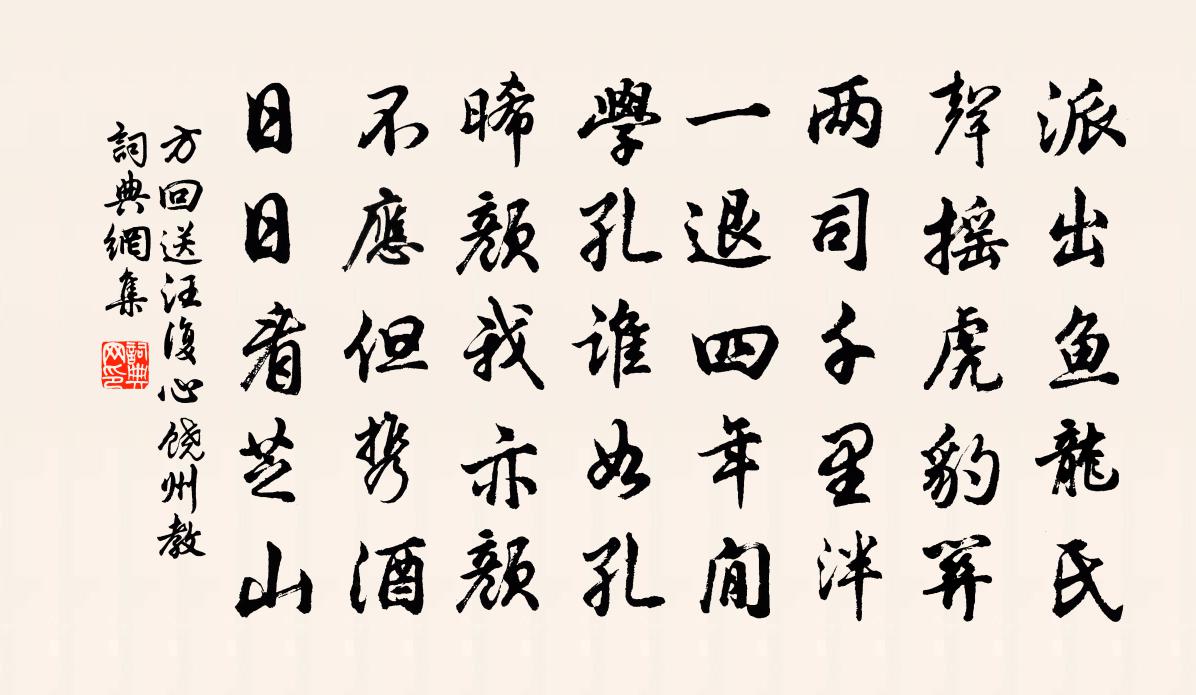 派出鱼龍氏
聲摇虎豹關
两司千里泮
一退四年間
學孔谁如孔
晞顔我亦顔
不應但携酒
日日看芝山
方回送汪復心饶州教
詞典網集
詞典网印